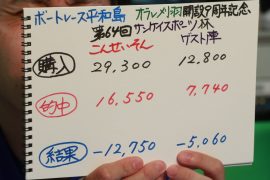 ボートレース平和島 オラレ刈羽開設9周年記念
第64回 サンケイスポーツ杯
こんせいそん ゲスト陣
購入 29,300 12,800
的中 16,550 7,740
結果 -12,750 -5,060